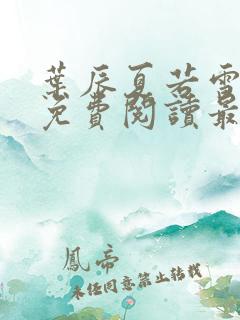 葉辰夏若雪
免費閱讀最
鳳帝
未任同意禁止转载